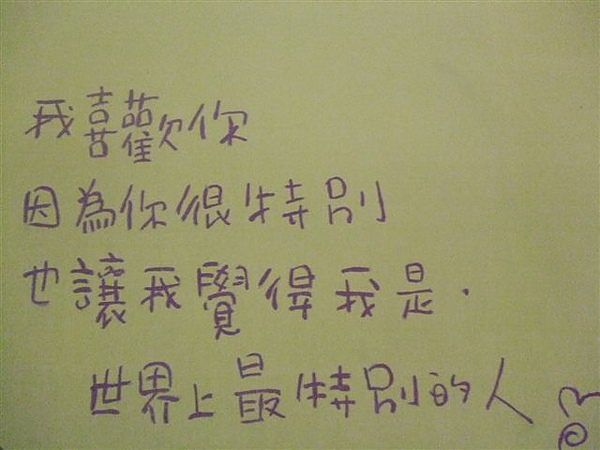 我喜歡你
因為你很特別
也讓我覺得我是.
世界上最特別的人